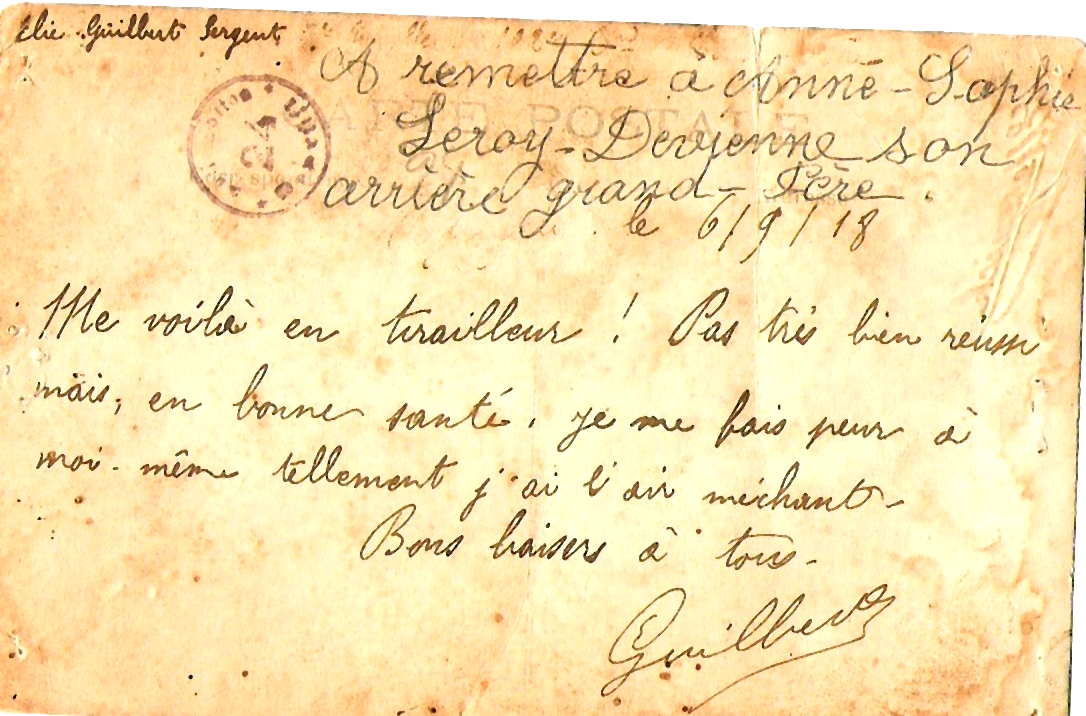 Elie Guilbert Sergent
A remettre à Anne-Sophie
Leroy-Devienne son
arrière grand-Père.
CARTE POSTALE
le 6/9/18
Me voilà en tirailleur ! Pas très bien réussi
mais, en bonne santé. Je me fais peur à
moi-même tellement j'ai l'air méchant-
Bons baisers à tous-
Guilbert